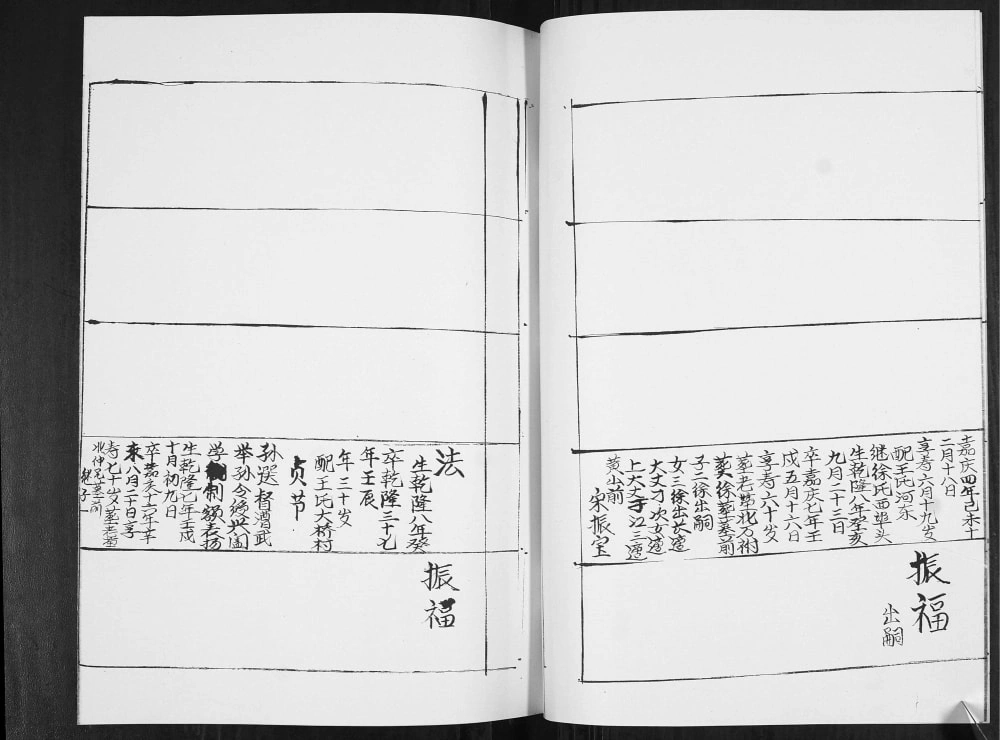 嘉庆四年己未十
二月十八日
享寿六月十九岁
配王氏河东
继徐氏西埠头
生乾隆八年癸亥
九月二十三日
卒嘉庆七年壬
戌五月十六日
享寿六十岁
墓老茔北万树
葵徐墓墓前
子二徐出嗣
女三徐出长適
大丈刀次女適
上大丈子江三適
黄山前
宋振宝
振福
出嗣
法
生乾隆八年癸
卒乾隆三十七
年壬辰
年三十岁
配王氏大桥村
贞节
孙選督漕武
举孙令编共闾
学制额表扬
生乾隆七年壬戌
十月初九日
卒嘉庆十六年辛
未八月二十日享
寿七十岁墓老茔
北仲兄墓前
子一
振福